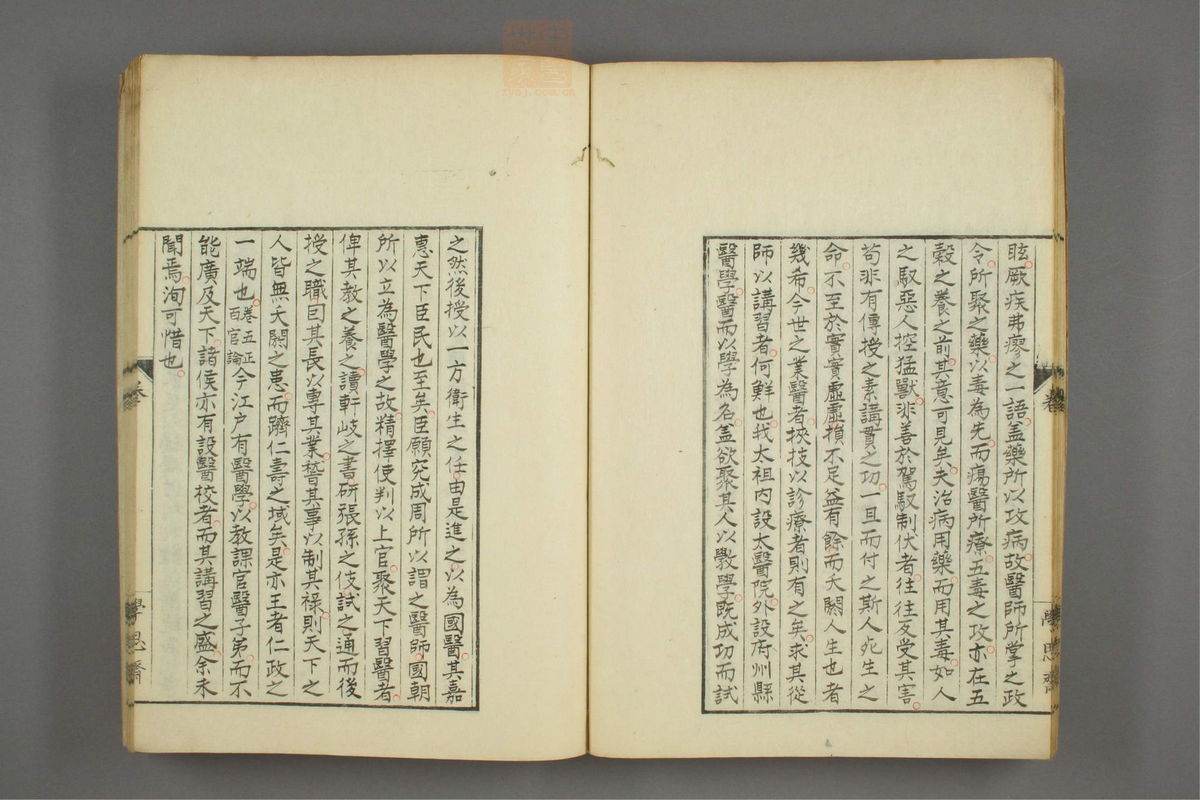 眩厥疾弗瘳之一語蓋藥所以攻病故醫師所掌之政
令所聚之藥以毒為先而瘍醫所療五毒之攻亦在五
穀之養之前其意可見矣夫治病用藥而用其毒如人
之馭惡人控猛獸非善於駕馭制伏者往往反受其害
苟非有傳授之素講貫之功一旦而付之斯人死生之
命不至於實實虛虛損不足益有餘而夭閼人生也者
幾希今世之業醫者挾技以診療者則有之矣求其從
師以講習者何鮮也我太祖內設太醫院外設府州縣
醫學醫而以學為名蓋欲聚其人以斆學既成功而試
之然後授以一方衛生之任由是進之以為國醫其嘉
惠天下臣民也至矣臣願究成周所以謂之醫師國朝
所以立為醫學之故精擇使判以上官聚天下習醫者
俾其教之養之讀軒岐之書研張孫之伎試之通而後
授之職曰其長以專其業嵆其事以制其祿則天下之
人皆無夭閼之患而躋仁壽之域矣是亦王者仁政之
一端也卷五正百官論今江户有醫學以教課官醫子弟而不
能廣及天下諸侯亦有設醫校者而其講習之盛余未
聞焉洵可惜也
卷
學思齋
卷
學思齋
zysj.com.cn